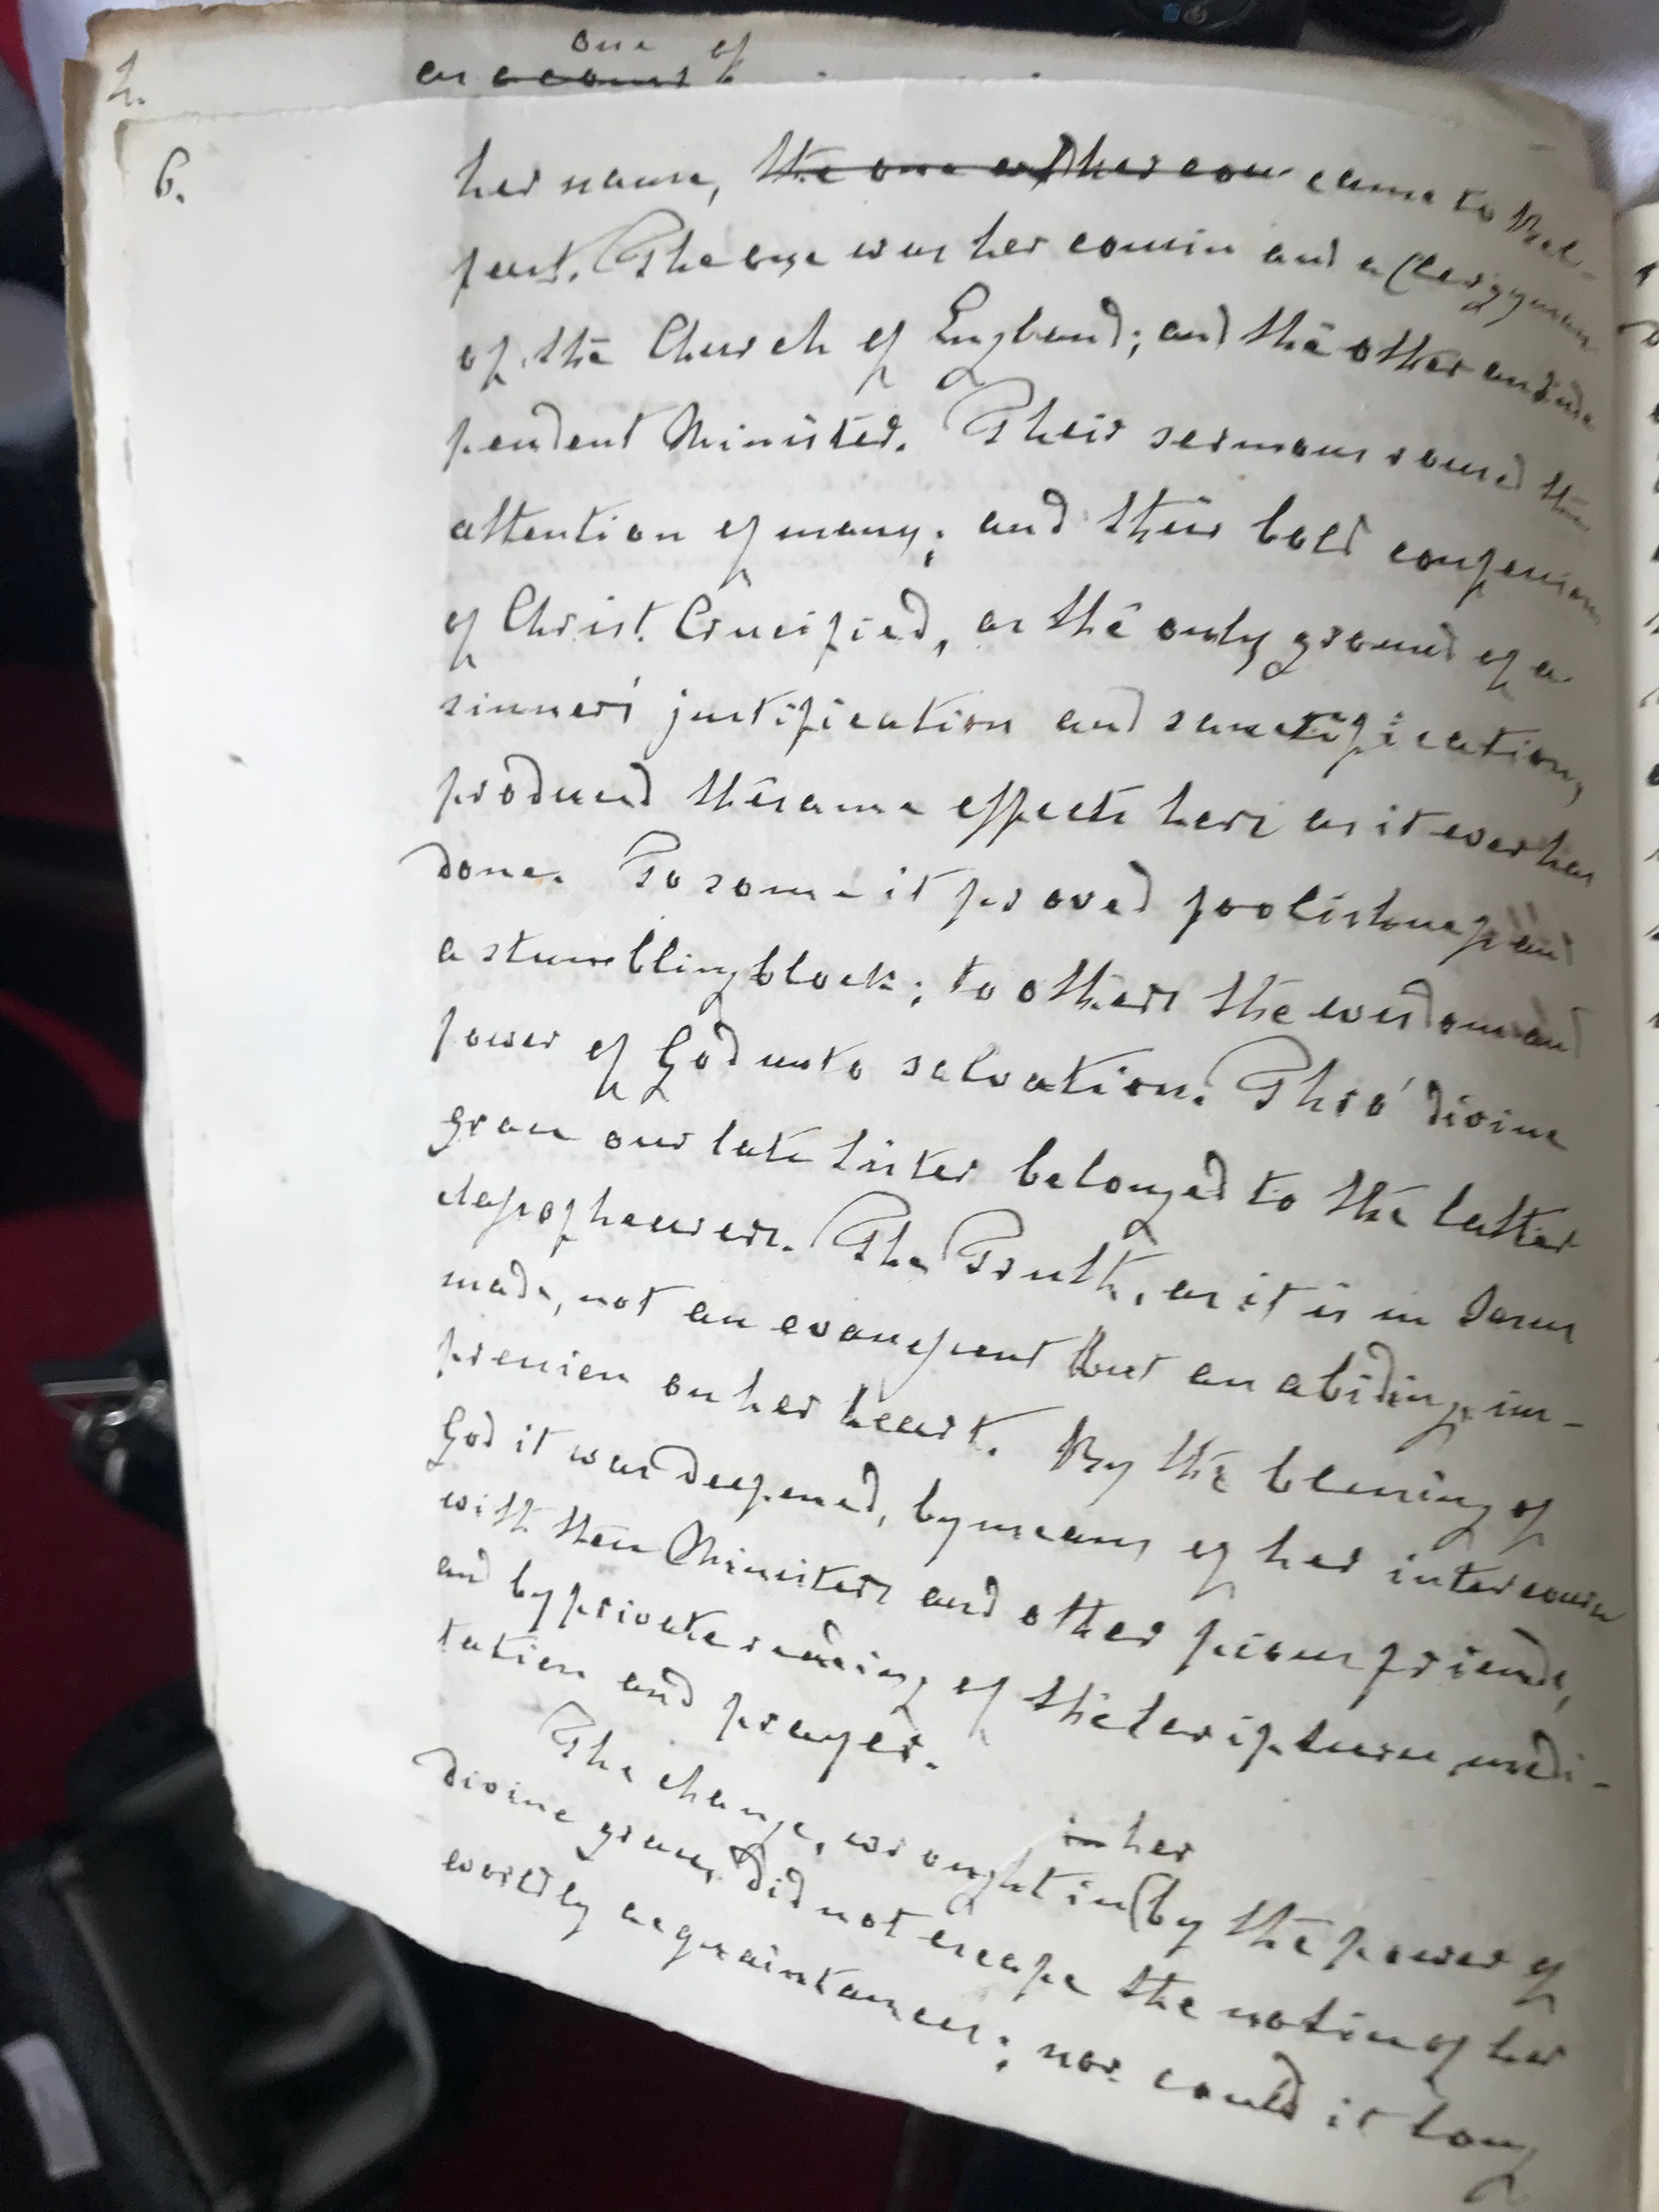 2.
one of
as account
6.
her name, the one of her cou came to Bel-
fast. The one was her cousin and a Clergyman
of the Church of England; and the other an Inde
pendent Minister. Their sermons roused the
attention of many; and their bold confession
of Christ Crucified, as the only ground of a
sinner's justification and sanctification,
produced the same effects here as it ever has
done. To some it proved foolishness and
a stumbling block; to others the wisdom and
power of God unto salvation. Thro' divine
grace our late Sister belonged to the latter
class of hearers. The Truth, as it is in Jesus
made, not an evanescent but an abiding, im-
pression on her heart. By the blessing of
God it was deepened, by means of her intercourse
with these Ministers and other pious friends,
and by private reading of the Scriptures, medi-
tation and prayer.
The change, wrought in by the power of
in her
divine grace, did not escape the notice of her
worldly acquaintances; nor could it long